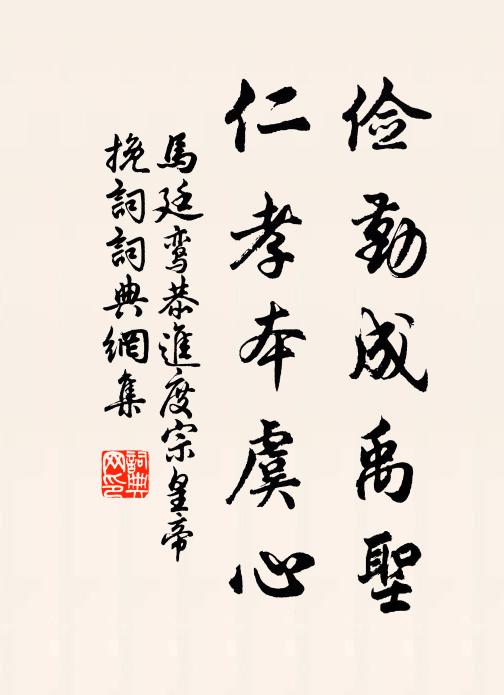 俭勤成禹聖
仁孝本虞心
馬廷鸞恭進度宗皇帝
挽詞詞典網集
詞典
网印